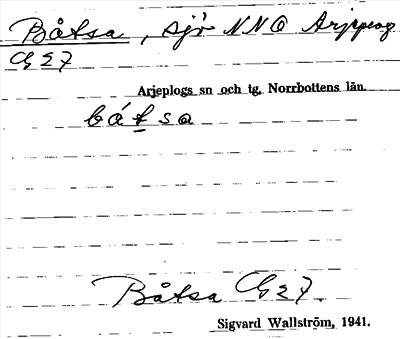 Båtsa, sjö NNO Arjeplog
G27
Arjeplogs sn och tg, Norrbottens län.
bátsa
Båtsa G27.
Sigvard Wallström, 1941.